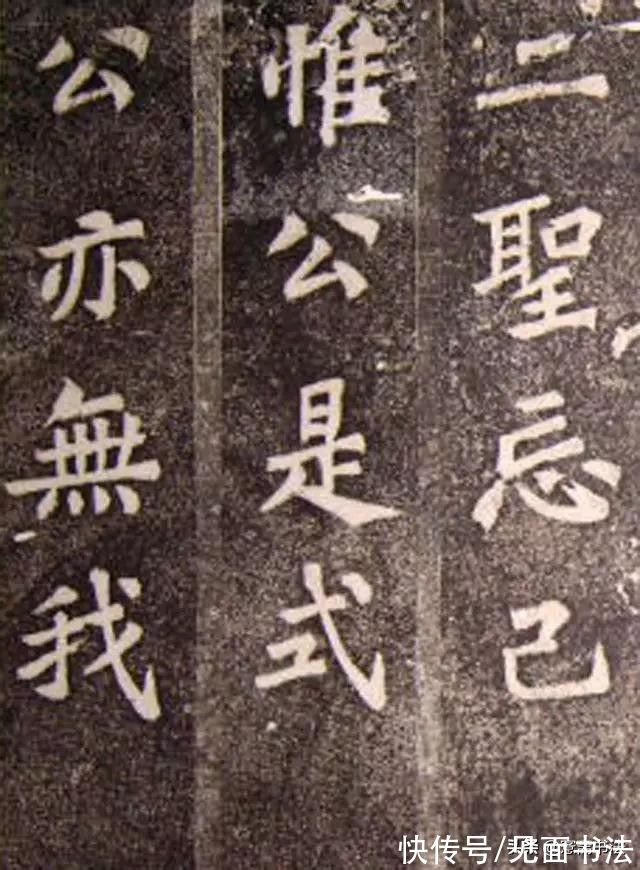 二聖忘己
惟公是式
公亦無我
快传号/见面书法